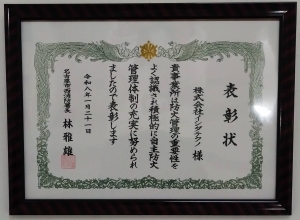 表彰状
株式会社イシダテクノ 様
貴事業所は防火管理の重要性を
よく認識され積極的に自主防火
管理体制の充実に努められ
ましたので表彰します
令和八年一月二十一日
名古屋市西消防署長
林 雅雄